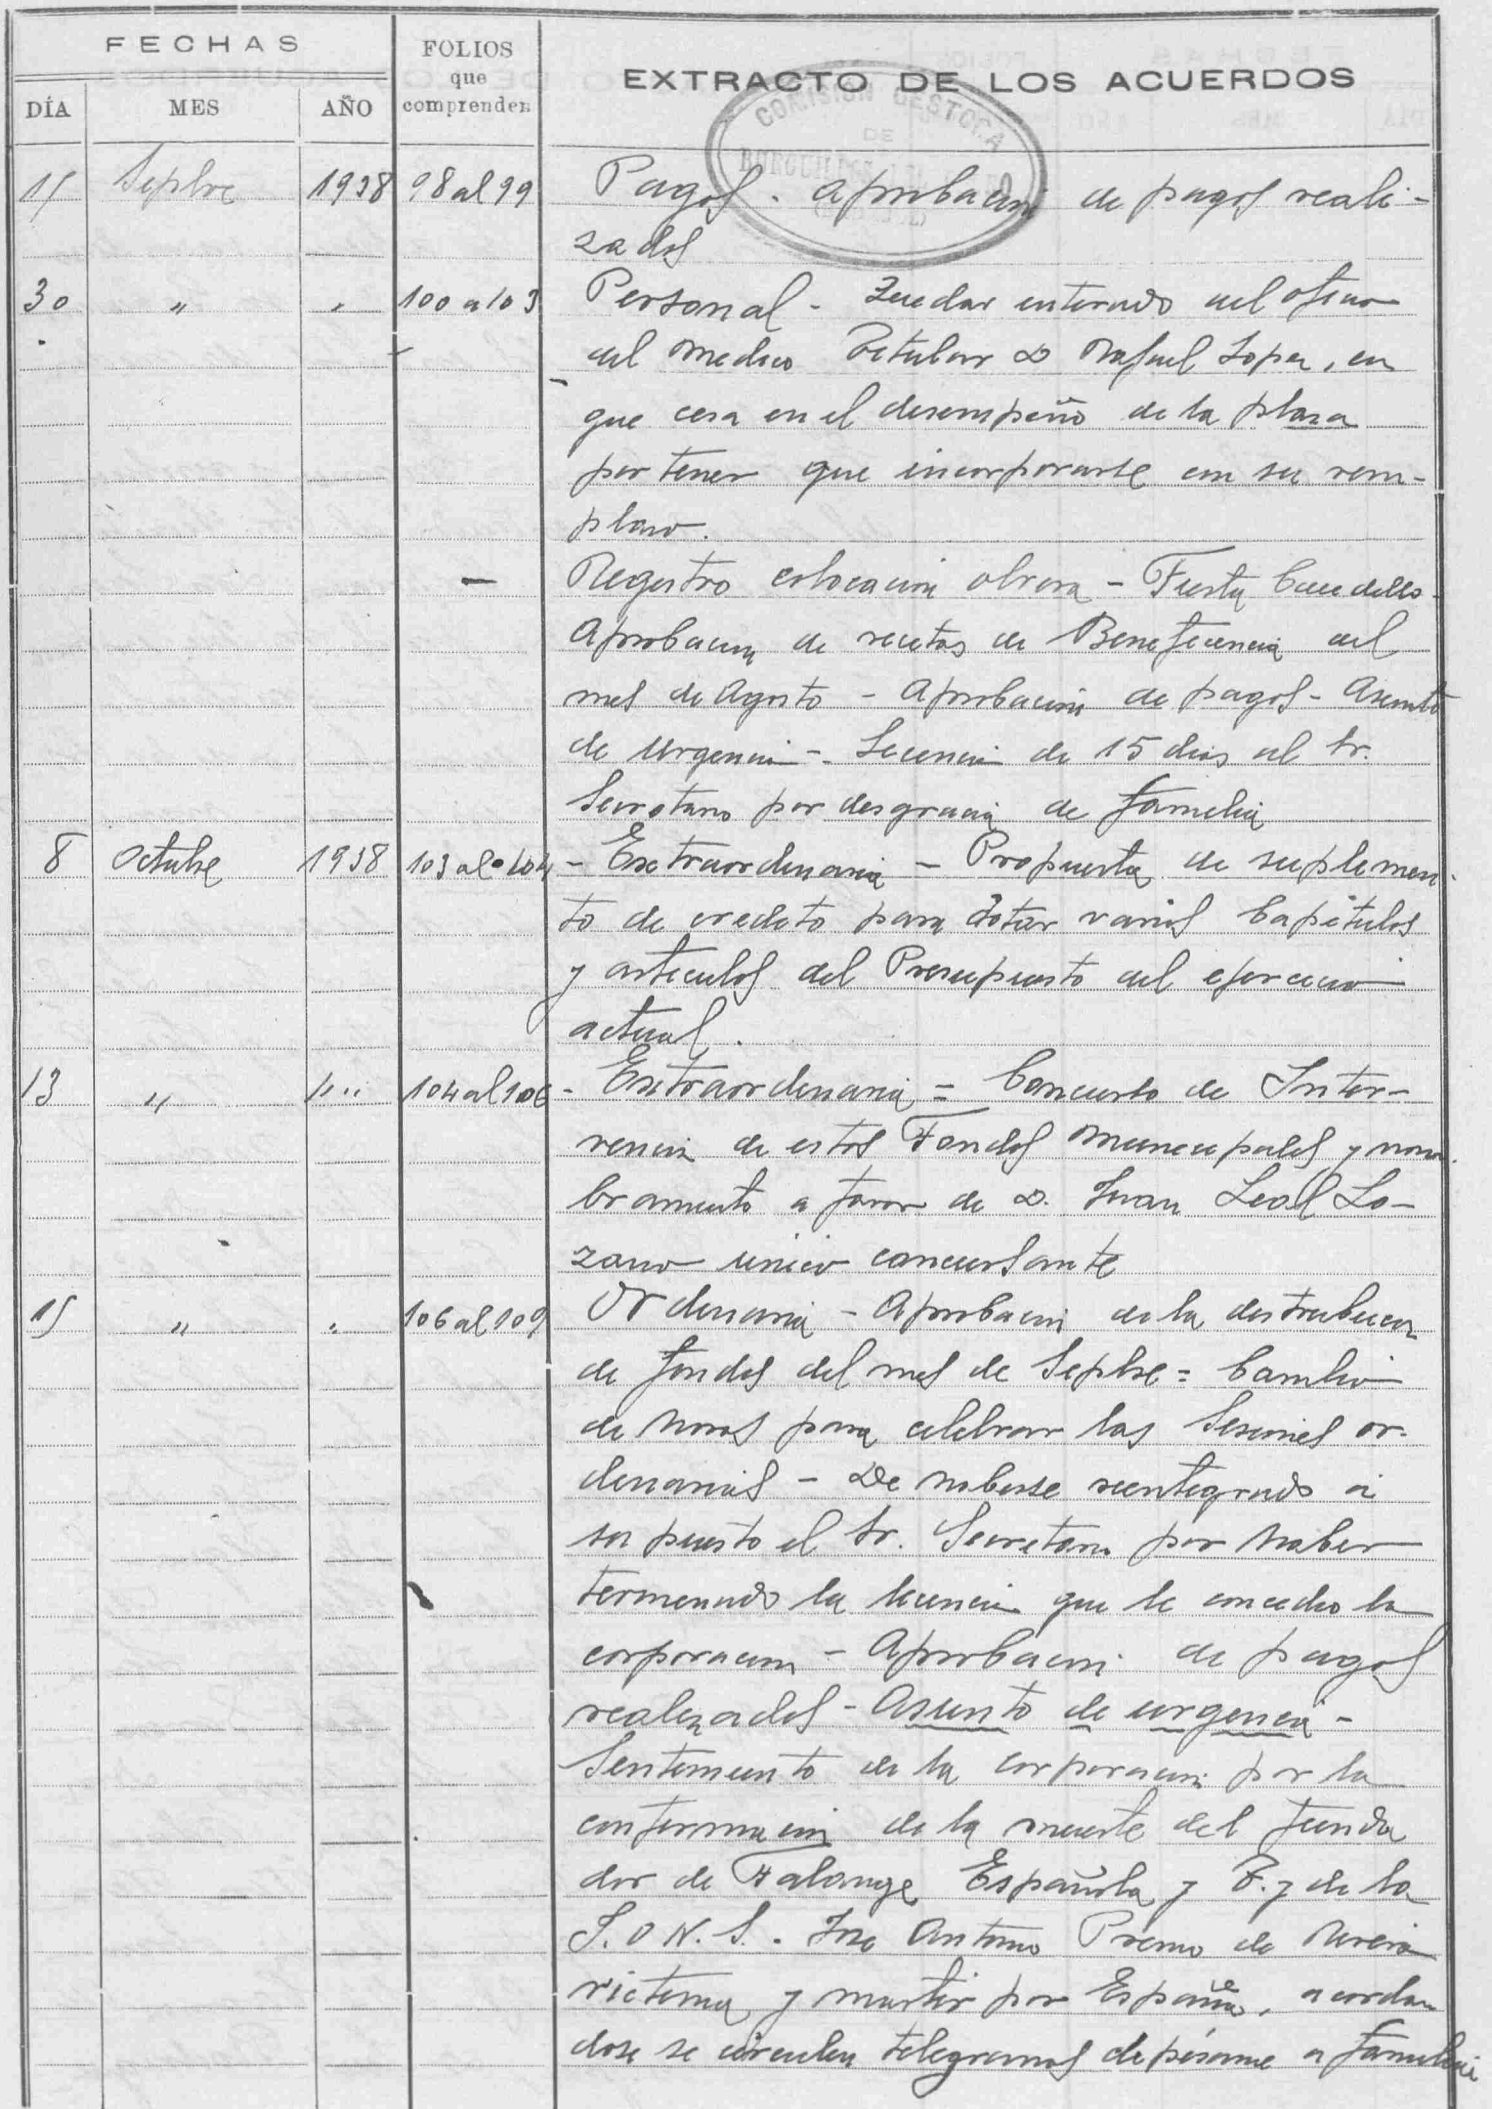 FECHAS
FOLIOS
que
comprenden
EXTRACTO DE LOS ACUERDOS
DÍA MES AÑO
COMISIÓN GESTORA
DE
15 Sepbre 1938 98 al 99 Pagos. Aprobacion de pagos reali-
zados
30 " " 100 a 103 Personal - Quedar enterado del oficio
del Medico Titular D Rafael Lopez, en
que cesa en el desempeño de la plaza
por tener que incorporarse con su rem-
plazo.
Registro colocacion obrera - Fiesta Caudillo -
Aprobacion de recetas de Beneficencia del
mes de Agosto - Aprobacion de pagos - Asunto
de Urgencia - Licencia de 15 dias al Sr.
Secretario por desgracia de familia
8 Octubre 1938 103 al 104 - Extraordinaria - Propuesta de suplemen-
to de credito para dotar varios Capitulos
y articulos del Presupuesto del ejercicio
actual.
13 " " 104 al 106 - Extraordinaria = Concurso de Inter-
vencion de estos Fondos Municipales y nom-
bramiento a favor de D. Juan Leal Lo-
zano unico concursante
15 " " 106 al 109 Ordinaria - Aprobacion de la distribucion
de fondos del mes de Sepbre = Cambio
de horas para celebrar las Sesiones or-
dinarias - De haberse reintegrado a
su puesto el Sr. Secretario por haber
terminado la licencia que le concedio la
corporacion - Aprobacion de pagos
realizados - Asunto de urgencia -
Sentimiento de la corporacion por la
confirmacion de la muerte del funda
dor de Falange Española y T. y de la
J.O.N.S. Jose Antonio Primo de Rivera
victima y martir por España, acordan
dose se circulen telegramas de pésame a familia